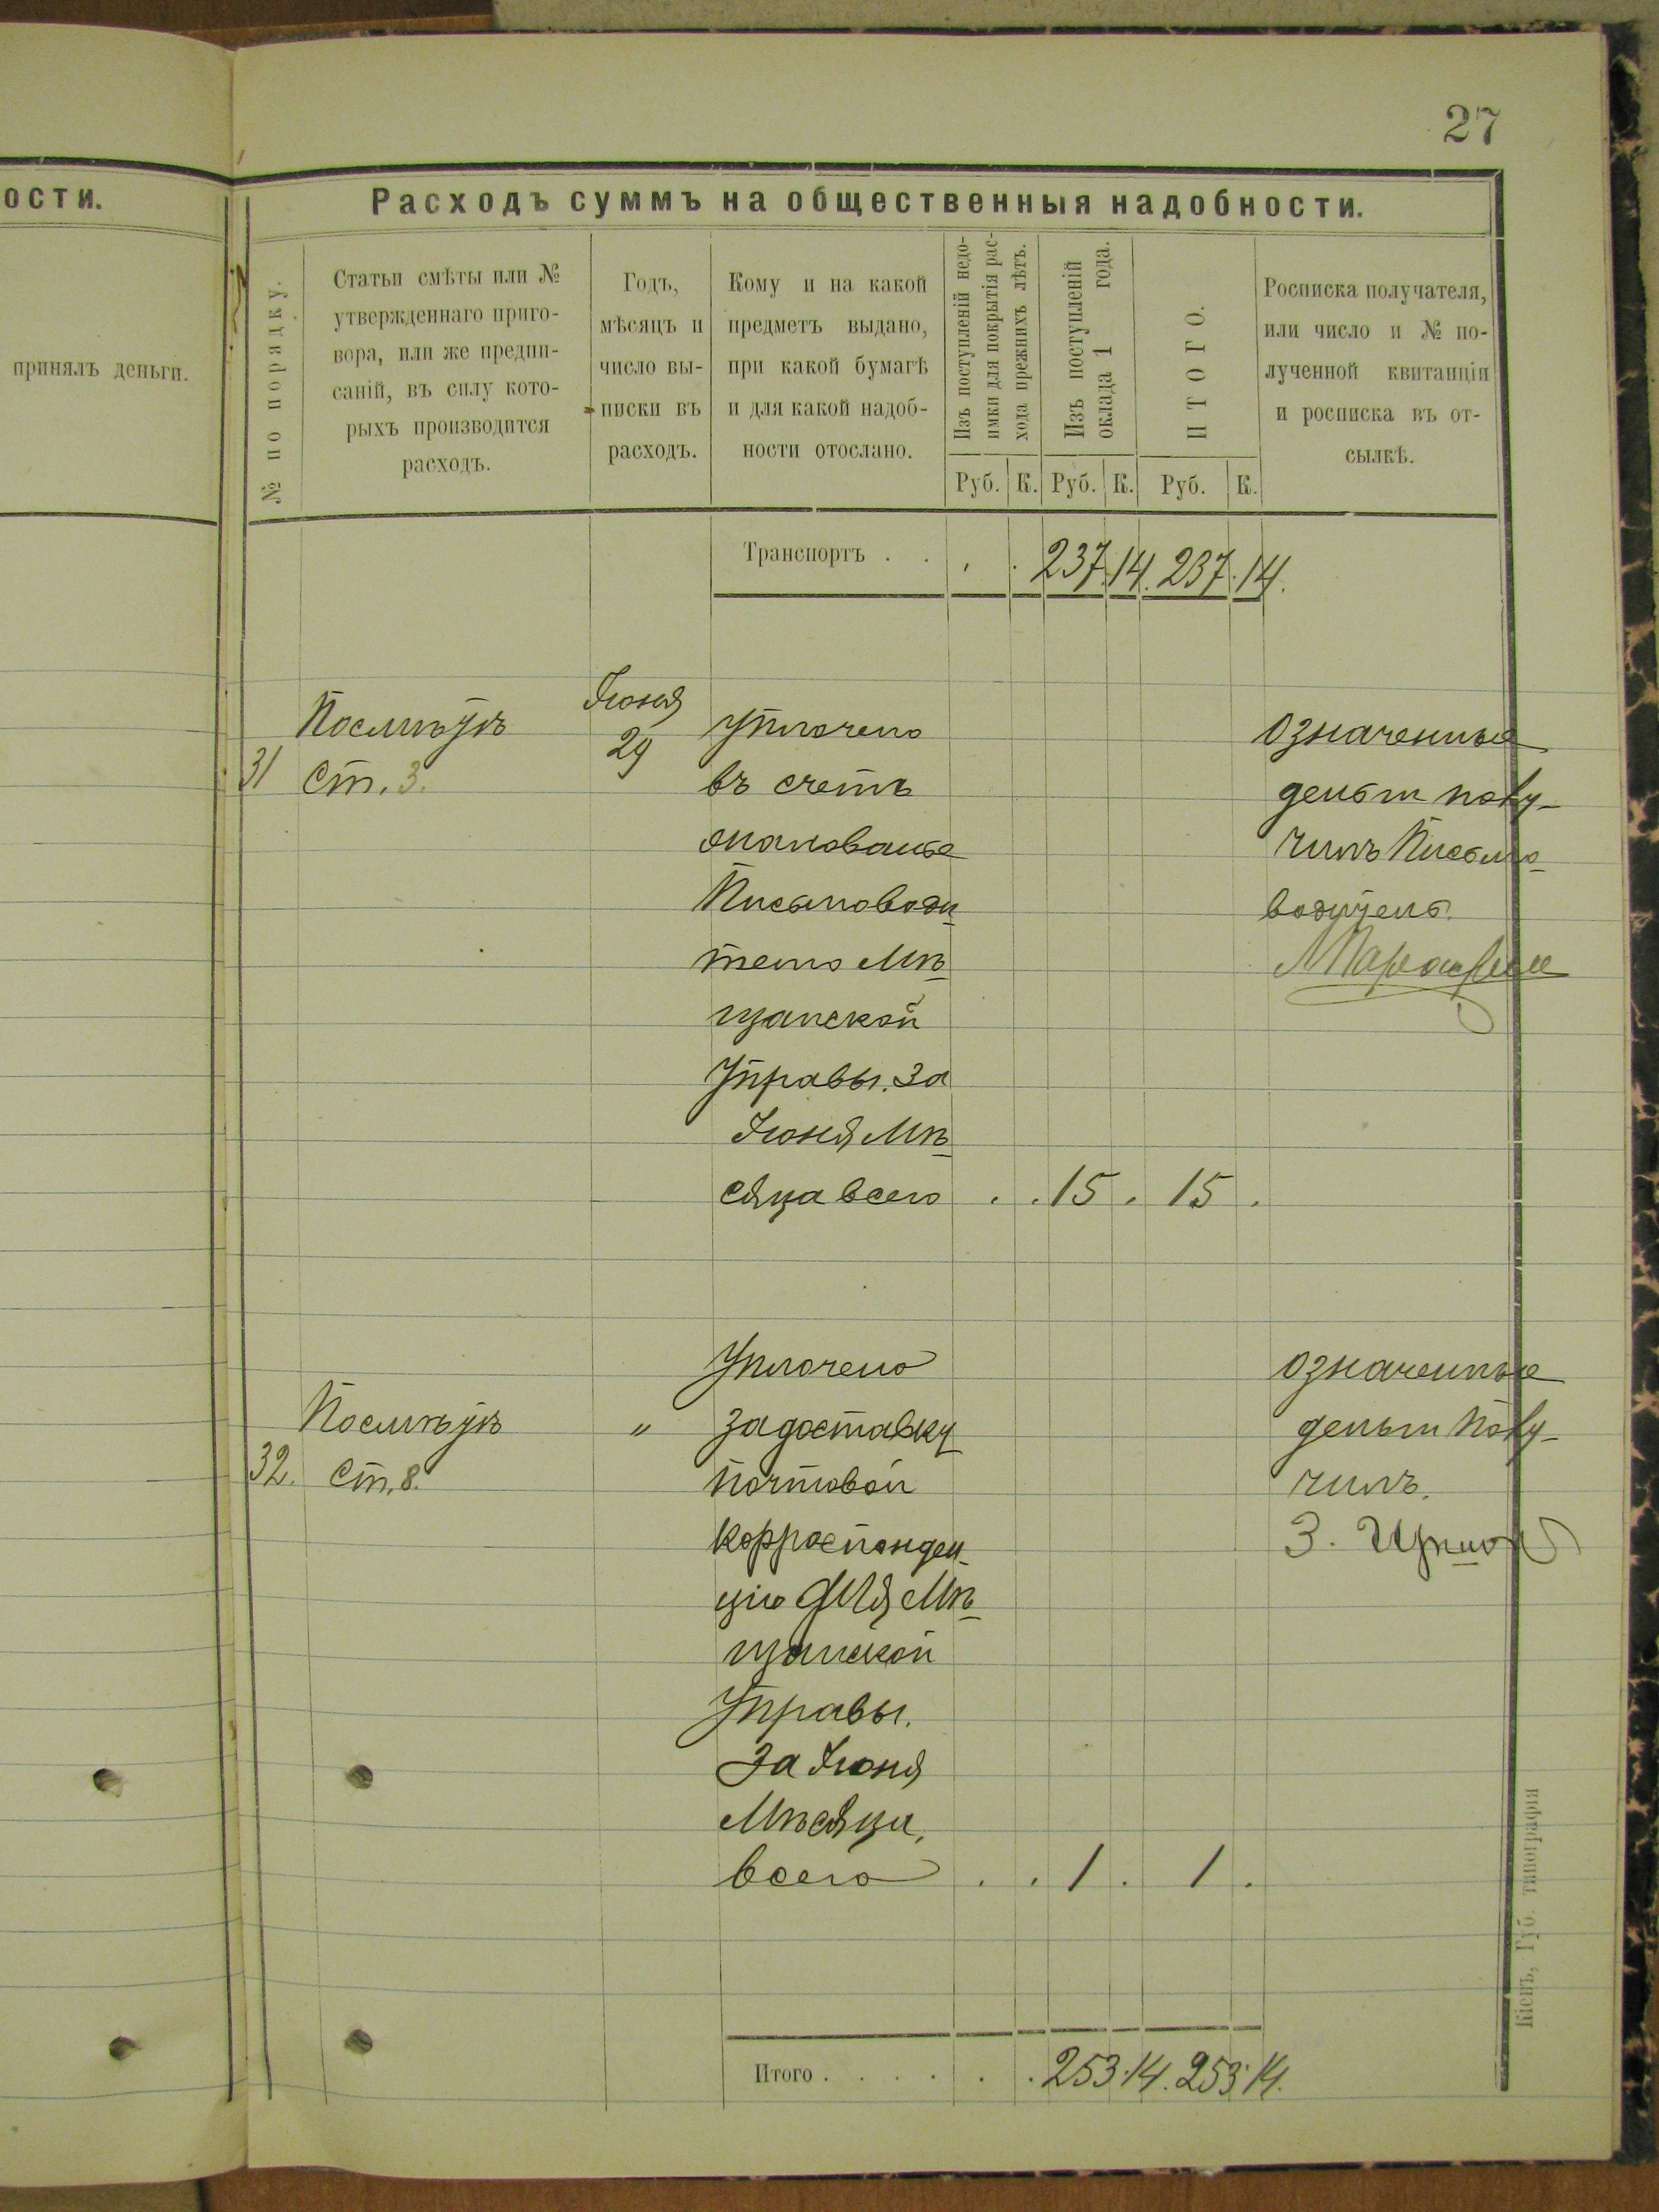 27
ости.
принялъ деньги.
Расходъ суммъ на общественныя надобности.
№ по порядку.
Статьи смѣты или №
утвержденнаго приго-
вора, или же предпи-
саній, въ силу кото-
рыхъ производится
расходъ.
Годъ,
мѣсяцъ и
число вы-
писки въ
расходъ.
Кому и на какой
предметъ выдано,
при какой бумагѣ
и для какой надоб-
ности отослано.
Изъ поступленій недо-
имки для покрытія рас-
хода прежнихъ лѣтъ.
Изъ поступленій
оклада 1 года.
ИТОГО.
Росписка получателя,
или число и № по-
лученной квитанціи
и росписка въ от-
сылкѣ.
Руб. К. Руб. К. Руб. К.
Транспортъ . . . . 237.14. 237.14.
31
Посмѣтѣ
Ст. 3.
Іюня
29
Уплочено
въ счетъ
жалованье
Письмоводи
телю Мѣ
щанской
Управы. За
Іюня Мѣ
сяца всего . . 15 . 15 .
Означенные
деньги полу-
чилъ Письмо
водитель
32.
Посмѣтѣ
Ст. 8.
"
Уплочено
за доставку
почтовой
корреспонден
цію Для Мѣ
щанской
Управы.
За Іюня
Мѣсяцъ,
всего . . 1 . 1 .
Означенные
деньги полу-
чилъ.
З.
Итого . . . . . . 253.14. 253.14.
Кіевъ, Губ. типографія